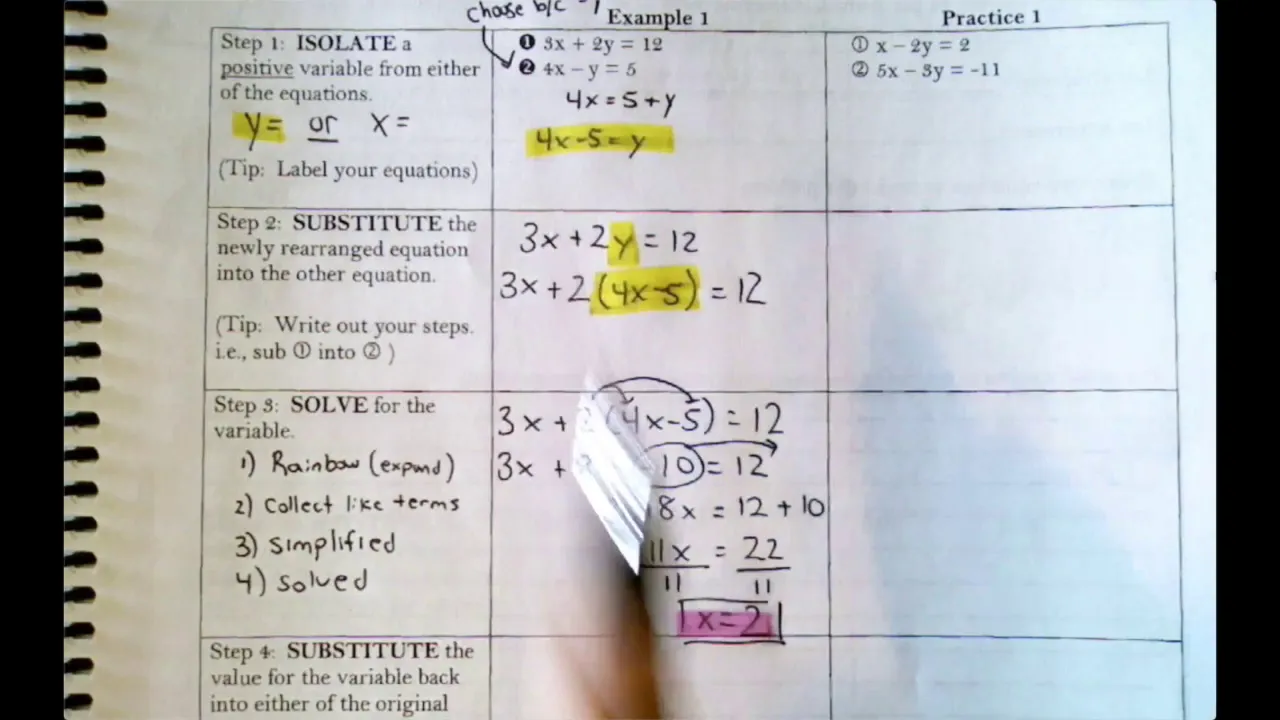 chose b/c -1
Example 1
Practice 1
Step 1: ISOLATE a
positive variable from either
of the equations.
y= or x=
(Tip: Label your equations)
❶ 3x + 2y = 12
❷ 4x – y = 5
4x = 5 + y
4x-5 = y
① x – 2y = 2
② 5x – 3y = -11
Step 2: SUBSTITUTE the
newly rearranged equation
into the other equation.
(Tip: Write out your steps.
i.e., sub ① into ② )
3x + 2y = 12
3x + 2(4x-5) = 12
Step 3: SOLVE for the
variable.
1) Rainbow (expand)
2) Collect like terms
3) Simplified
4) Solved
3x + (4x-5) = 12
3x + 10 = 12
8x = 12 + 10
11x = 22
11 11
x = 2
Step 4: SUBSTITUTE the
value for the variable back
into either of the original